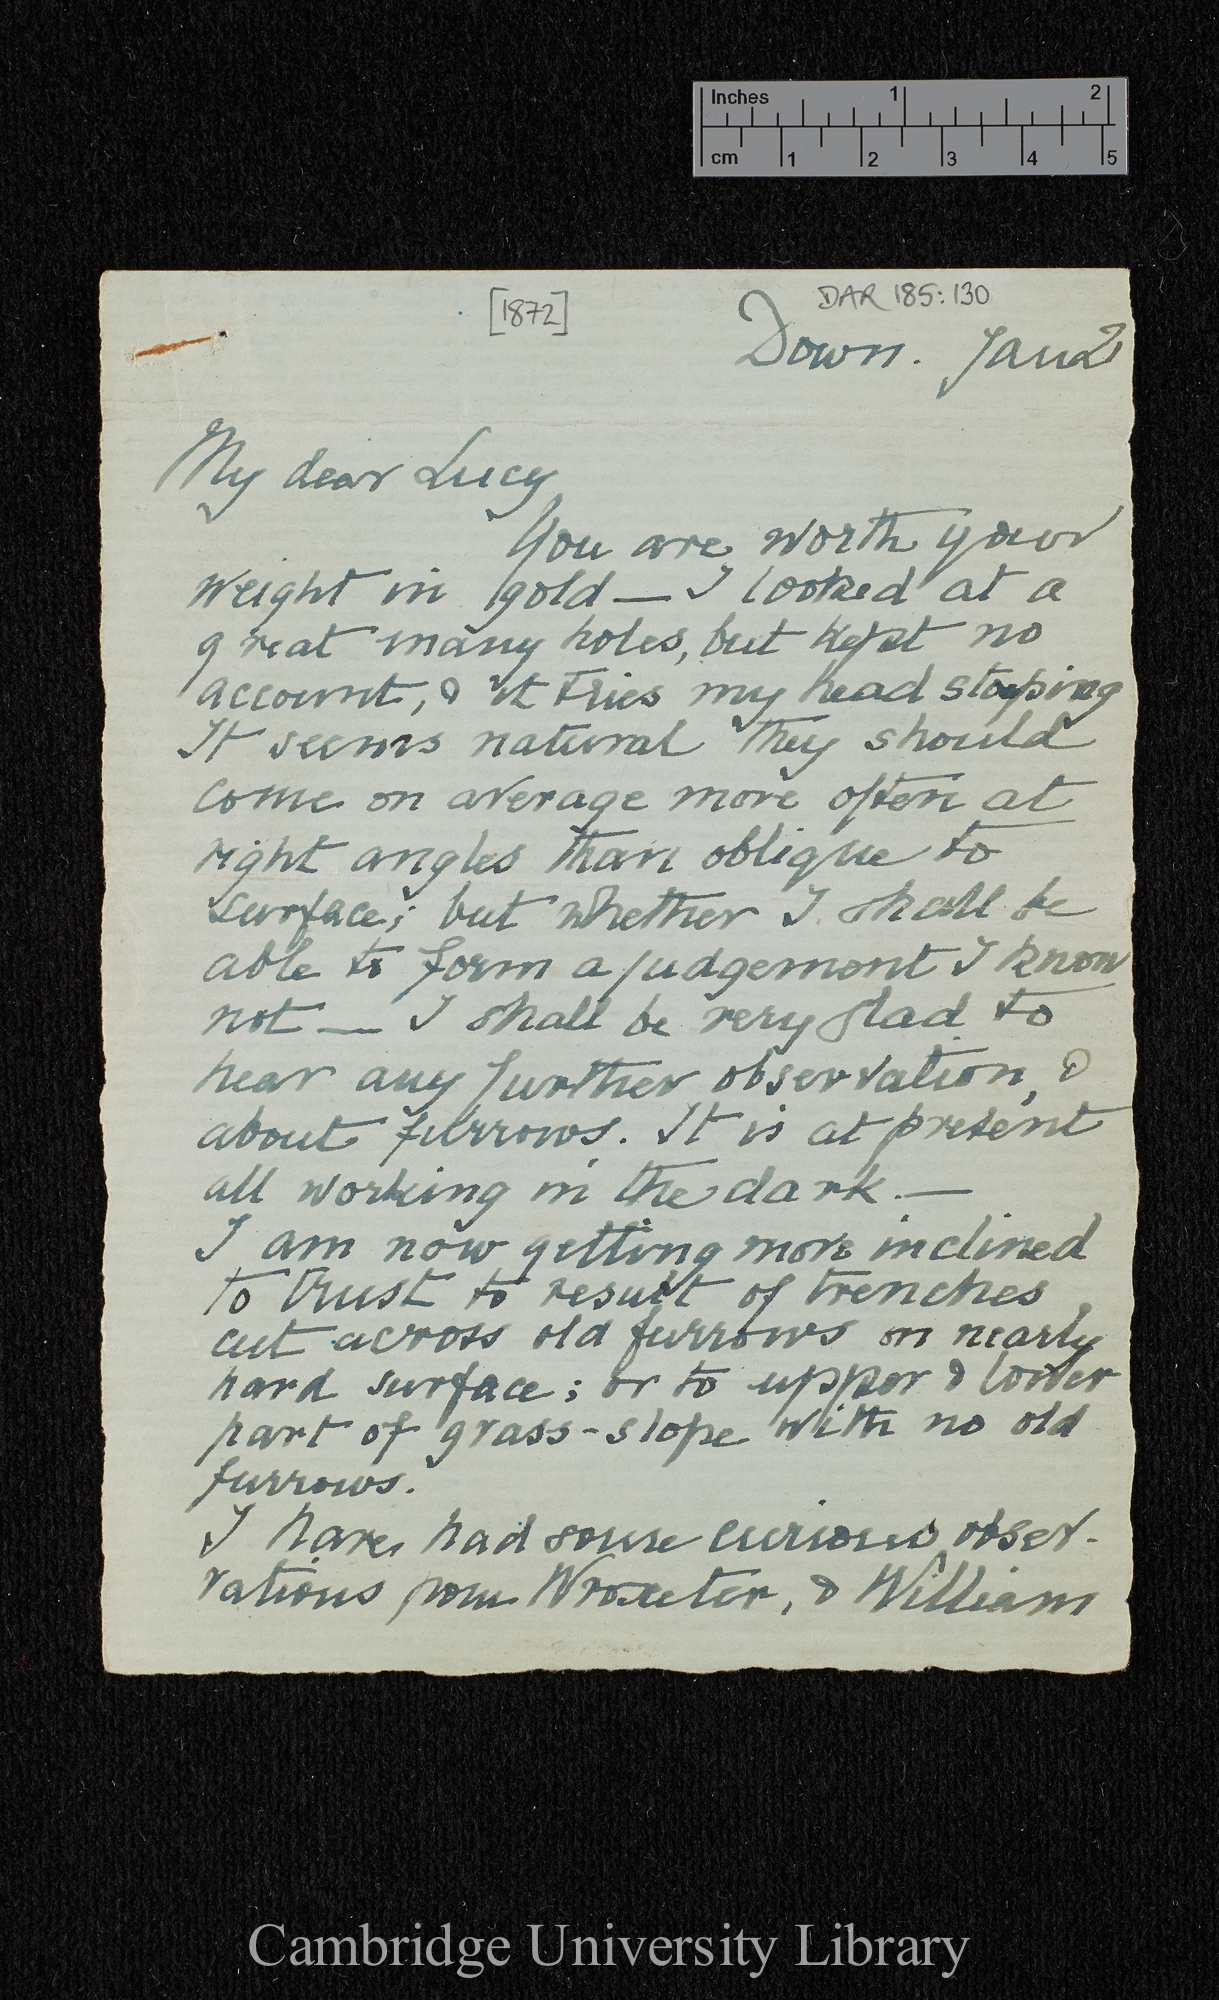 Inches 1 2
cm 1 2 3 4 5
[1872] DAR 185:130
Down. Jan 2
My dear Lucy
You are worth your
weight in gold — I looked at a
great many holes, but kept no
account, & it tries my head stooping
It seems natural they should
come on average more often at
right angles than oblique to
surface; but whether I shall be
able to form a judgement I know
not — I shall be very glad to
hear any further observation, &
about furrows. It is at present
all working in the dark. —
I am now getting more inclined
to trust to result of trenches
cut across old furrows on nearly
hard surface; or to upper & lower
part of grass-slope with no old
furrows.
I have had some curious obser-
vations from Wroxeter, & William
Cambridge University Library